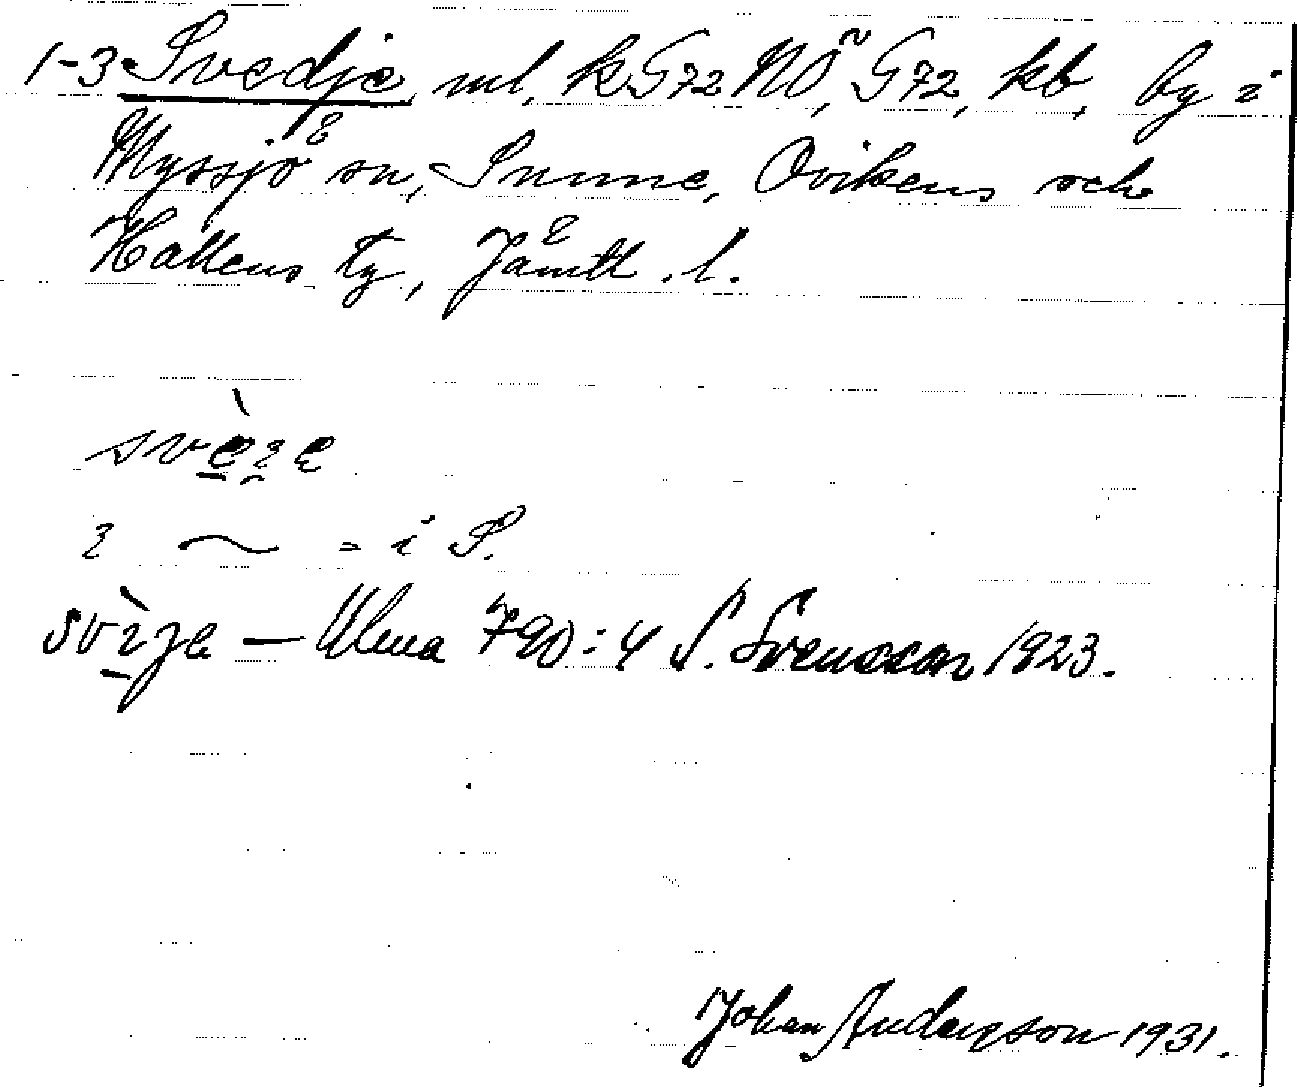 1-3 Svedje, ml, k G72 NÖ, G72, kb, by i
Myssjö sn, Sunne, Ovikens och
Hallens tg, Jämtl. l.
svèʒe
i ~ = i S.
svìʒe — Ulma 790:4 S. Svensson 1923.
Johan Anderson 1931.